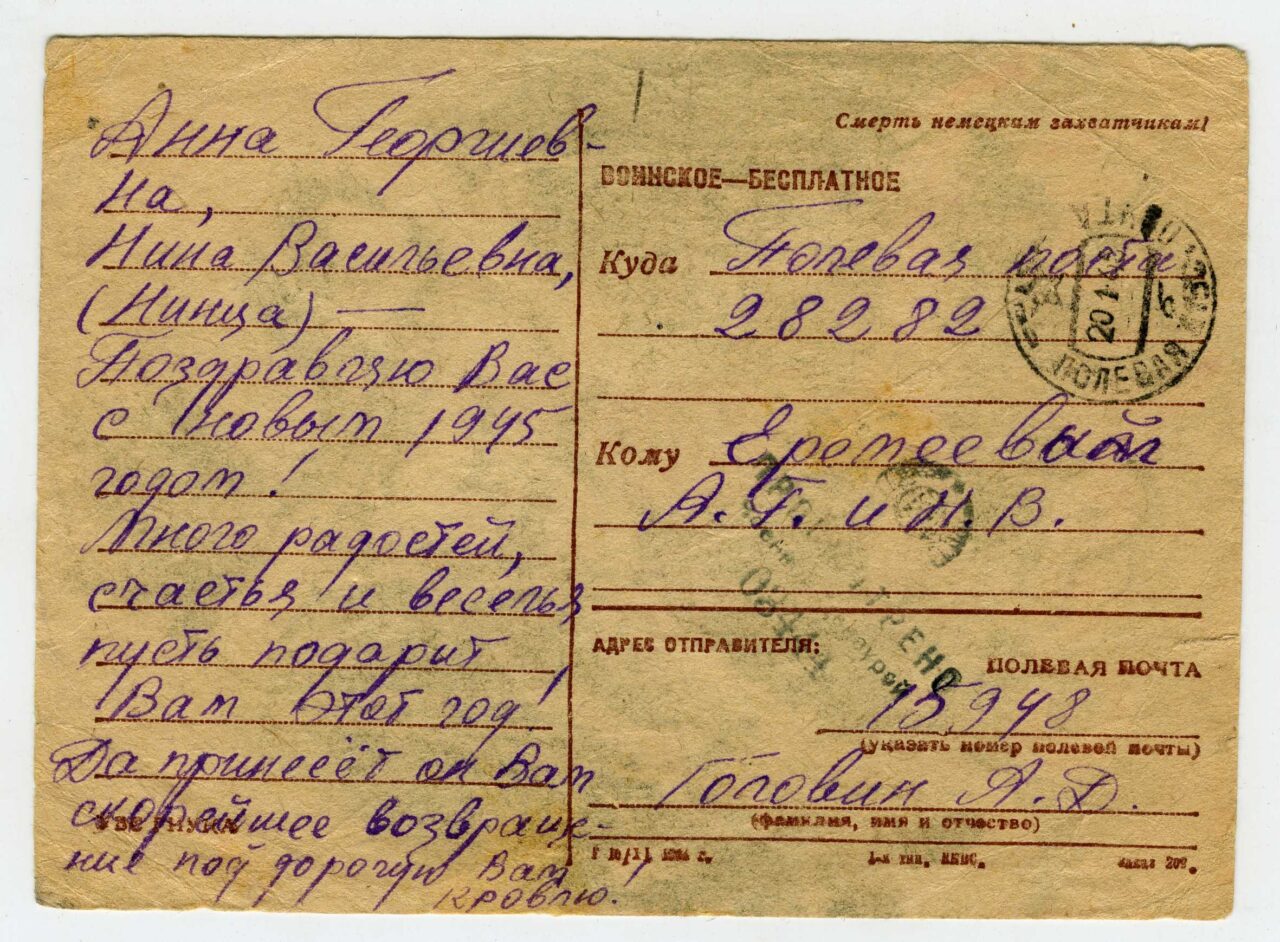 Анна Георгиев-
на,
Нина Васильевна,
(Нинца) —
Поздравляю Вас
с новым 1945
годом!
Много радостей,
счастья и веселья
пусть подарит
Вам этот год!
Да принесёт он Вам
скорейшее возвраще-
ние под дорогую Вам
кровлю.
Смерть немецким захватчикам!
ВОИНСКОЕ—БЕСПЛАТНОЕ
Куда Полевая почта
28282
ПОЛЕВАЯ
20 1 45
Кому Еремеевым
А. Г. и Н. В.
ПРОСМОТРЕНО
Военной Цензурой
АДРЕС ОТПРАВИТЕЛЯ:
ПОЛЕВАЯ ПОЧТА
15948
(указать номер полевой почты)
Головин А. Д.
(фамилия, имя и отчество)
1-я тип. Заказ 209.